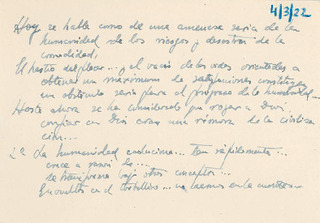 4/3/22
Hoy se habla como de una amenaza seria de la
humanidad de los riesgos y desastres de la
comodidad,
El hastío del placer... y el vacío de vidas orientadas a
obtener un maximum de satisfacciones constituye
un obstáculo serio para el progreso de la humanidad...
Hasta ahora se ha considerado que rogar a Dios,
confiar en Dios eran una rémora de la civiliza
ción...
La humanidad evoluciona... tan rápidamente...
crece a pasar de...
se transforma bajo otros conceptos...
Envueltos en el torbellino... no caemos en la cuenta